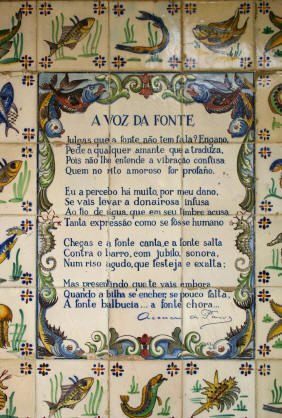 A VOZ DA FONTE
Julgas que a fonte não tem fala? Engano,
Pede a qualquer amante que a traduza,
Pois não lhe entende a vibração confusa
Quem no rito amoroso for profano.
Eu a percebo há muito, por meu dano,
Se vais levar a donairosa infusa
Ao fio de água, que em seu timbre acusa
Tanta expressão como se fosse humano
Chegas e a fonte canta, e a fonte salta
Contra o barro, com jubilo, sonora,
Num riso agudo, que festeja e exalta;
Mas presentindo que te vais embora
Quando a bilha se encher, se pouco falta,
A fonte balbucia... a fonte chora...